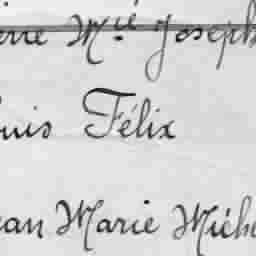 erre M.ié Joseph
ouis Félix
ean Marie Miche